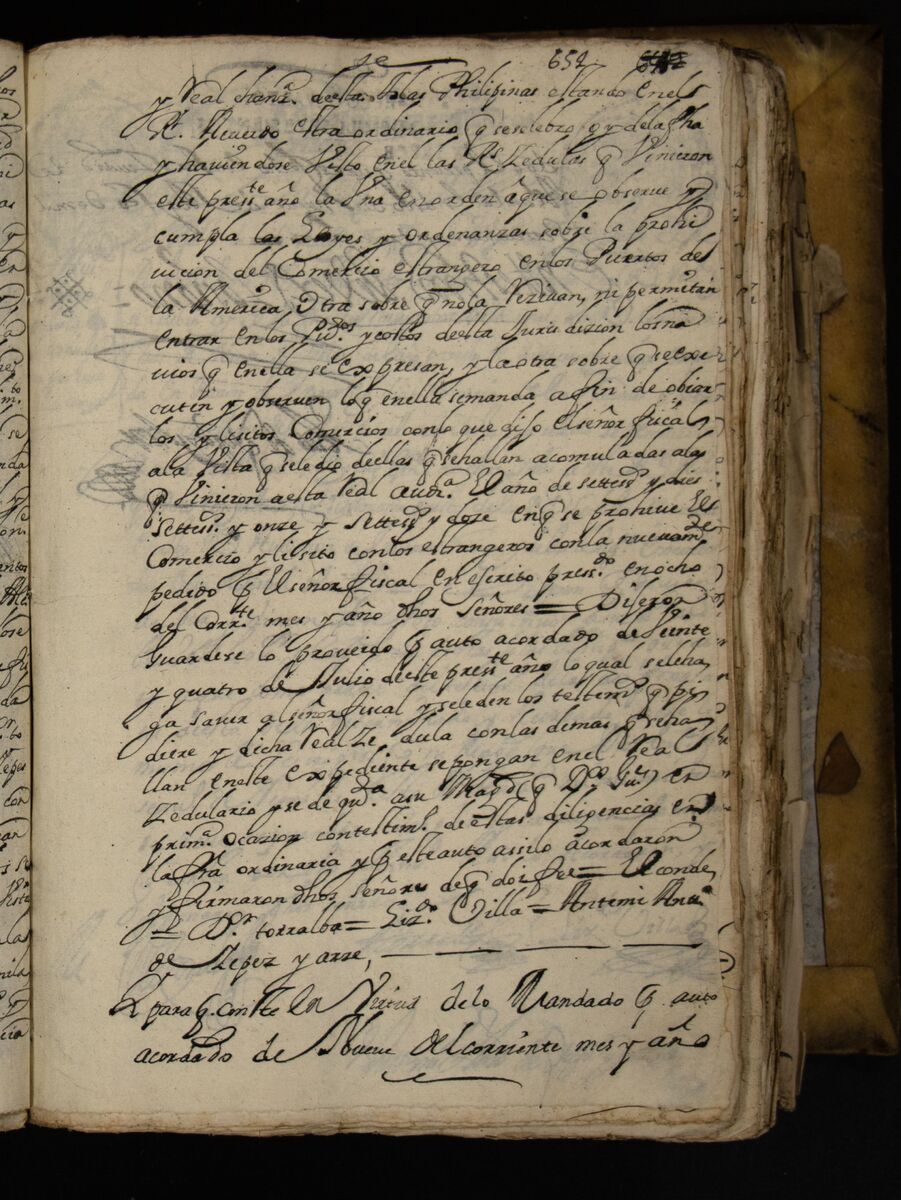 se 652
y Real chanz.ª de estas Islas Philipinas estando en el
R.l Acuerdo extra ordinario q̃ se selebro oy dela fha
y haviendose Visto en el las R.s Zedulas q̃ Vinieron
este press.te año la Vna en orden a que se observe y
cumpla las Leyes y ordenanzas sobre la prohi
vicion del Comercio estrangero en los Puertos de
la America, Otra sobre q̃ no la Rezivan, ni permitan
entrar en los Pu.os y costas de esta Jurisdizion los na
vios q̃ en ella se expresan, y la otra sobre q̃ se exe
cuten y observen lo q̃ en ella se manda a fin de obiar
los y lisitos Comercios con lo que dijo El señor fiscal
ala Vista q̃ se le dio de ellas q̃ se hallan acomuladas alas
q̃ Vinieron a esta Real Aud.ª El año de settes.s y dies
settess.s y onze y settess.s y dose en q̃ se prohive El
Comercio y lisito con los estrangeros con la nuevam.te
pedido p̃ El señor fiscal en escrito press.do en ocho
del Corr.te mes y año dhos Señores = Dijeron
Guardese lo proveido p̃ auto acordado de Veinte
y quatro de Julio de este press.te año lo qual se le ha
ga saver al señor fiscal y se le den los testim.s q̃ pi
diere y dicha Real Zedula con las demas q̃ se ha
llan en este Expediente se pongan en el Real
Zedulario y se de qu.ta a su Mag.d (q̃ D.s Gu.e) en
prim.ª ocazion con testim.º de estas diligencias en
la fr̃a ordinaria y p̃ este auto assi lo acordaron
y firmaron dhos Señores de q̃ doi fee = El conde
= D.or torralba = Liz.do Villa = Antemi Ant.º
de Yepez y arze,
Y para q̃ conste en Virtud de lo Mandado p̃ auto
acordado de Nueve del corriente mes y año